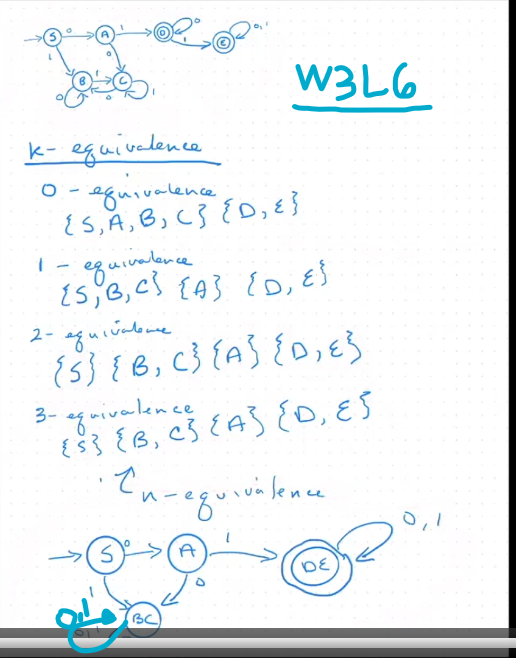 S 0 A 1 D 0 0,1
1 0 1 E
0 B 1 C 1
0
W3L6
k- equivalence
0 - equivalence
{S, A, B, C} {D, E}
1 - equivalence
{S, B, C} {A} {D, E}
2- equivalence
{S} {B, C} {A} {D, E}
3- equivalence
{S} {B, C} {A} {D, E}
n-equivalence
S 0 A 1 DE 0,1
1 0
0,1 BC
0,1